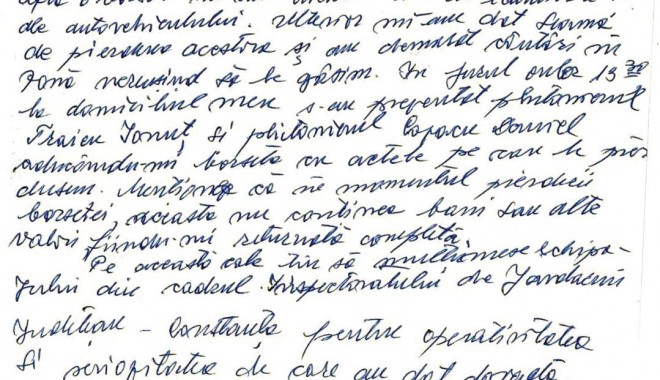 de autovehiculului. Ulterior mi-am dat seama
de pierderea acestora și am demarat căutări în
zonă nereușind să le găsim. În jurul orelor 13 30
la domiciliul meu s-au prezentat plutonierul
Traicu Ionuț și plutonierul Capacu Daniel
aducându-mi borseta cu actele pe care le pier
dusem. Menționez că în momentul pierderii
borsetei, aceasta nu conținea bani sau alte
valori fiindu-mi returnată completă.
Pe această cale țin să mulțumesc echipa-
jului din cadrul Inspectoratului de Jandarmi
Județean - Constanța pentru operativitatea
și seriozitatea de care au dat dovadă